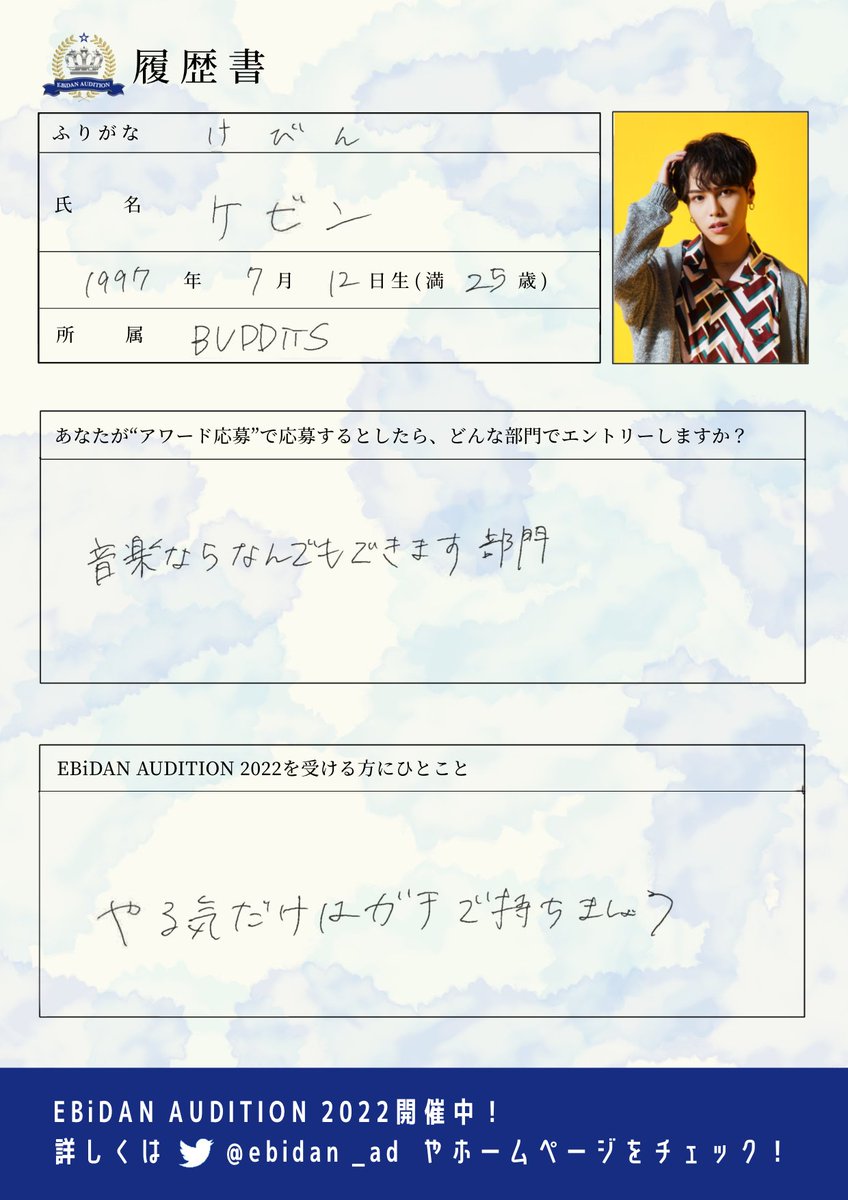 EBiDAN AUDITION
履歴書
ふりがな けびん
氏名 ケビン
1997年7月12日生(満25歳)
所属 BUDDiiS
あなたが“アワード応募”で応募するとしたら、どんな部門でエントリーしますか？
音楽ならなんでもできます部門
EBiDAN AUDITION 2022を受ける方にひとこと
やる気だけはガチで持ちましょう
EBiDAN AUDITION 2022開催中！
詳しくは @ebidan _ad やホームページをチェック！